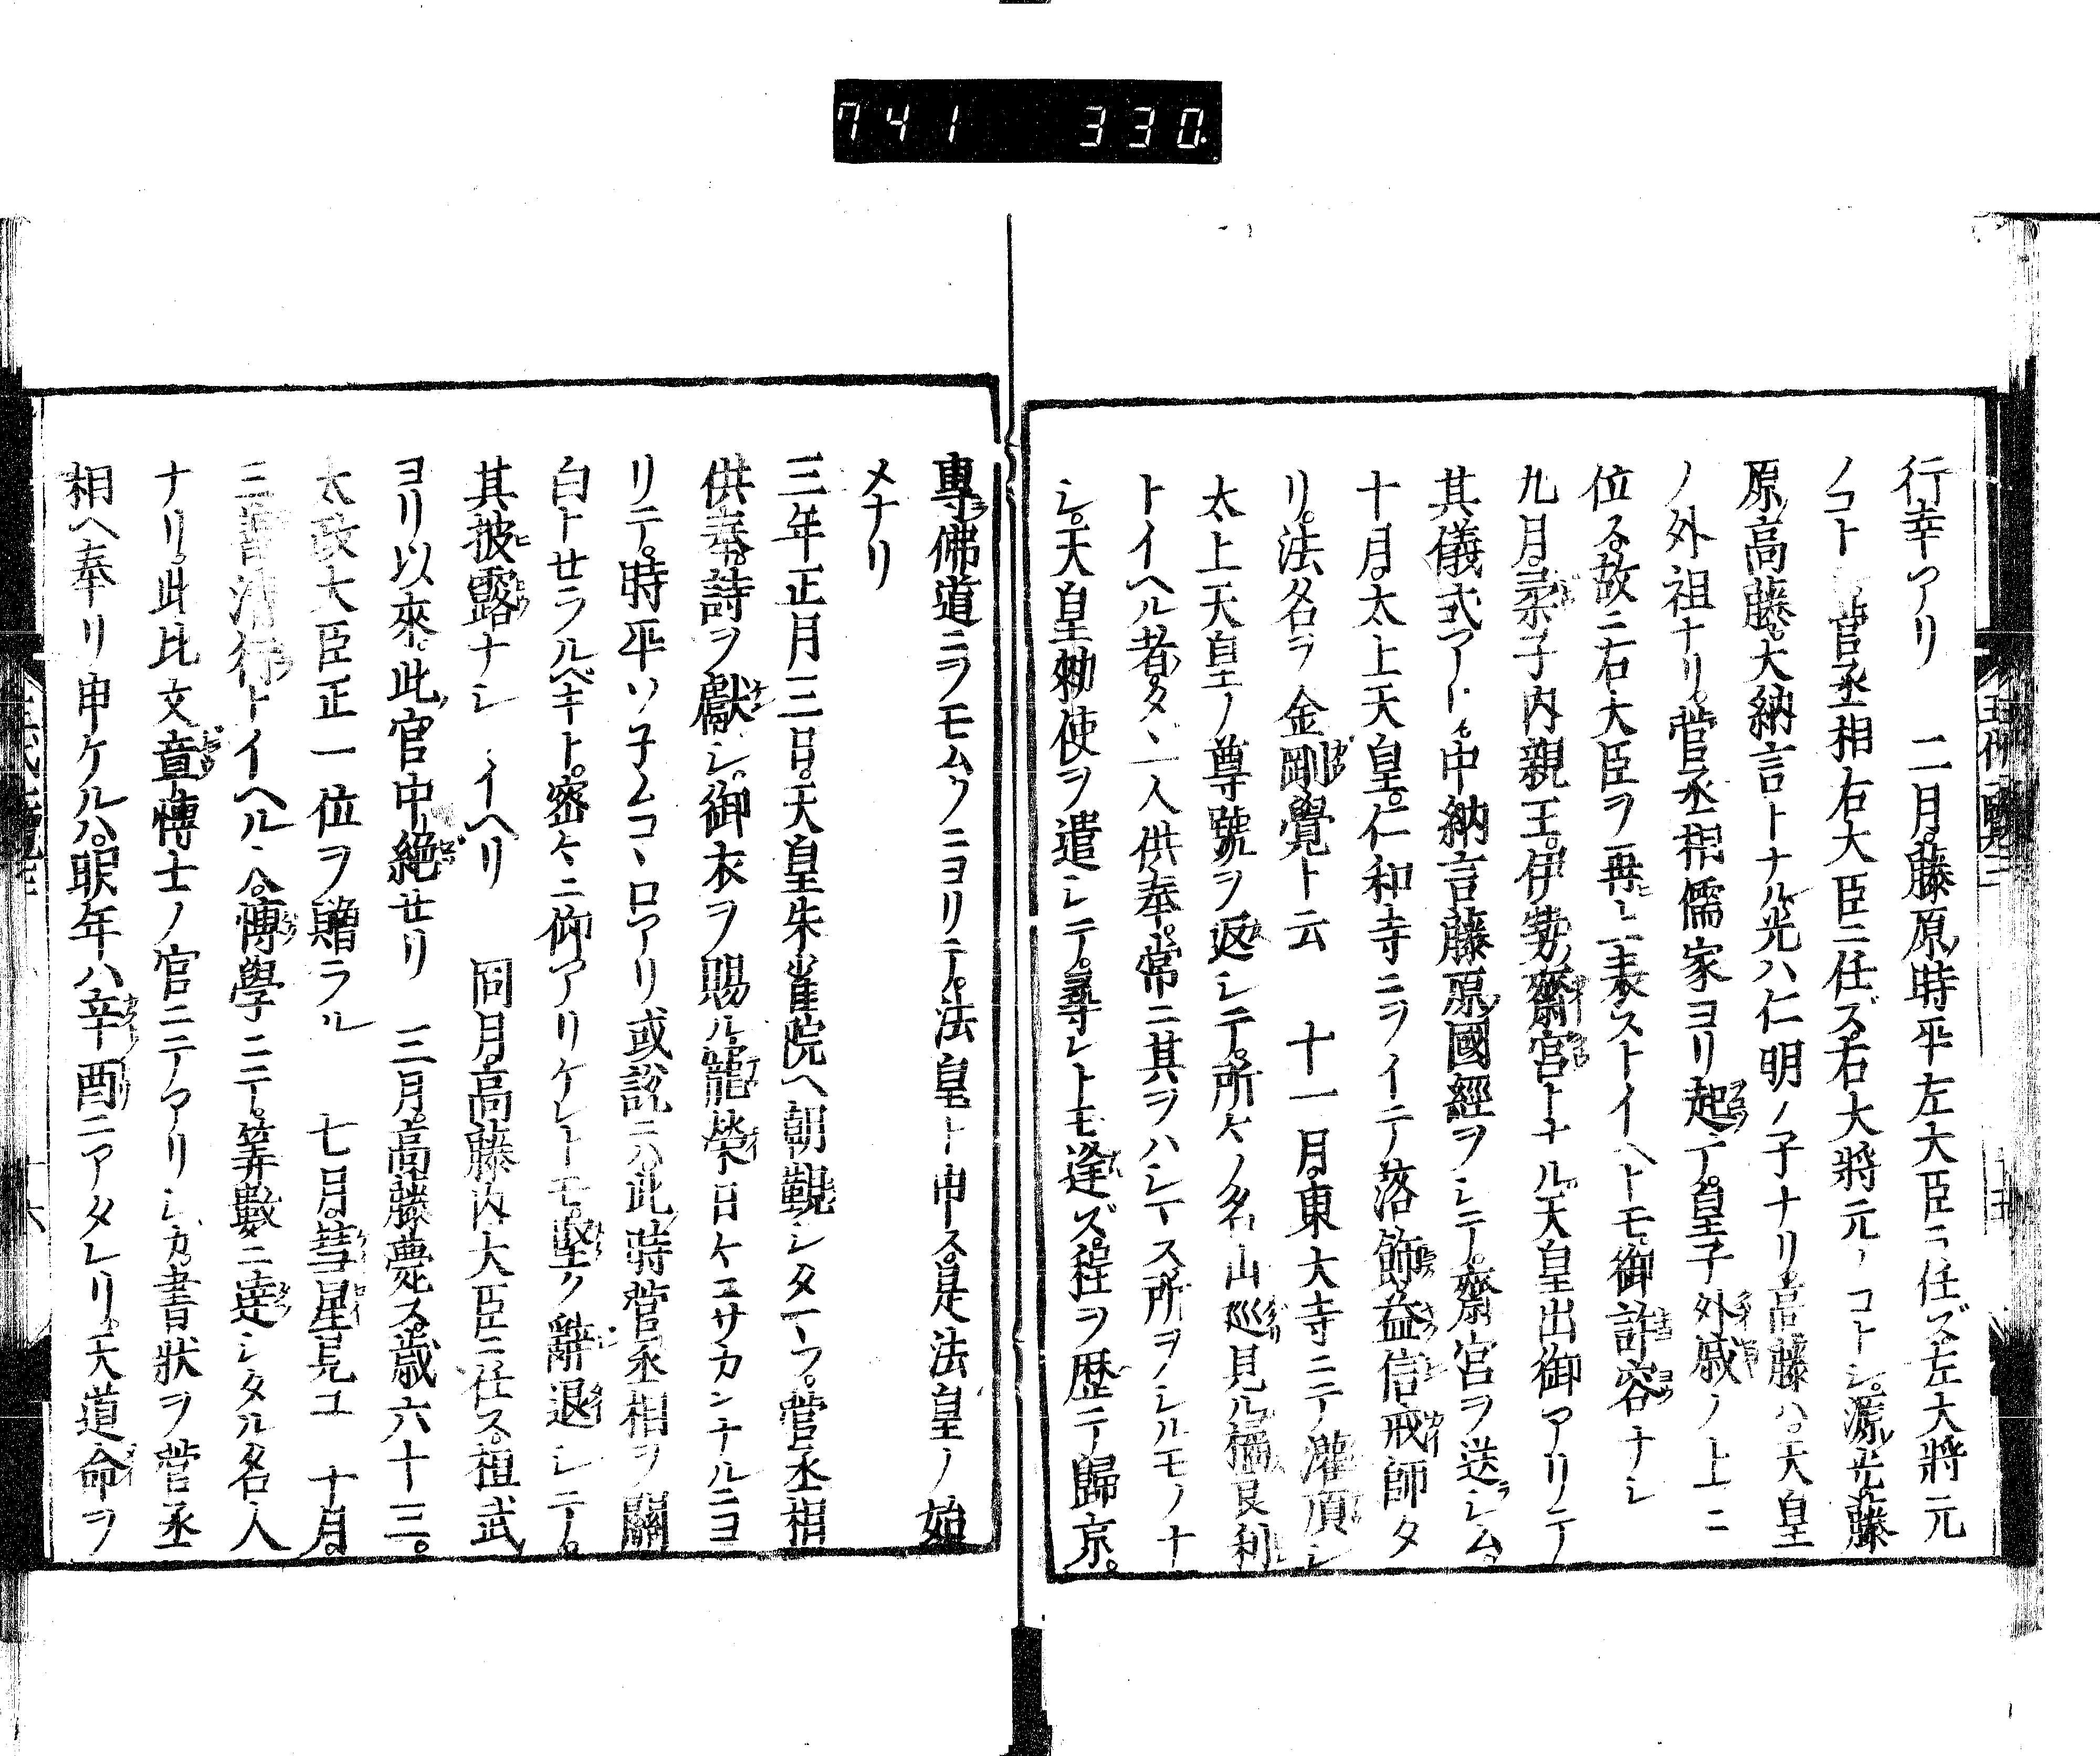 741 330
行幸アリ 二月。藤原ノ時平左大臣ニ任ズ。左大將元
ノコトシ。菅丞相右大臣ニ任ズ。右大將元ノコトシ。源ノ光藤
原ノ高藤大納言トナル。光ハ仁明ノ子ナリ。高藤ハ。天皇
ノ外祖ナリ。菅丞相儒家ヨリ起テ。皇子外戚ノ上ニ
位ス。故ニ右大臣ヲ再ヒ上表ストイヘトモ。御許容ナシ
九月。柔子内親王。伊勢ノ齋宮トナル。天皇出御アリテ
其儀式アリ。中納言藤原ノ國經ヲシテ。齋宮ヲ送ラシム。
十月。太上天皇。仁和寺ニヲイテ落飾。益信戒師タ
リ。法名ヲ金剛覺ト云 十一月。東大寺ニテ灌頂シ
太上天皇ノ尊號ヲ返シテ。所々ノ名山巡見ル。橘良利
トイヘル者。タヾ一人供奉。常ニ其ヲハシマス所ヲノシルモノナ
シ。天皇勅使ヲ遣シテ。尋レトモ逢ズ。程ヲ歴テ歸京。
專佛道ニヲモムクニヨリテ。法皇ト申ス。是法皇ノ始
メナリ
三年正月三日。天皇朱雀院ヘ朝覲シタマフ。菅丞相
供奉。詩ヲ獻シ。御衣ヲ賜ル。寵榮日々ニサカンナルニヨ
リテ。時平ソネムコヽロアリ或說ニハ此ノ時菅丞相ヲ關
白トせラルベキト。密々ニ仰アリケレトモ。堅ク辭退シテ。
其披露ナシトイヘリ 同月。高藤内大臣ニ任ス。桓武
ヨリ以來。此ノ官中絶せリ 三月。高藤薨ス。歳六十三。
太政大臣正一位ヲ贈ラル 七月。彗星見ユ 十月。
三善清行トイヘルハ。博學ニテ。筭數ニ達シタル名人
ナリ。此比文章博士ノ官ニテアリシカ。書狀ヲ菅丞
相ヘ奉リ申ケルハ。明年ハ辛酉ニアタレリ。天道命ヲ